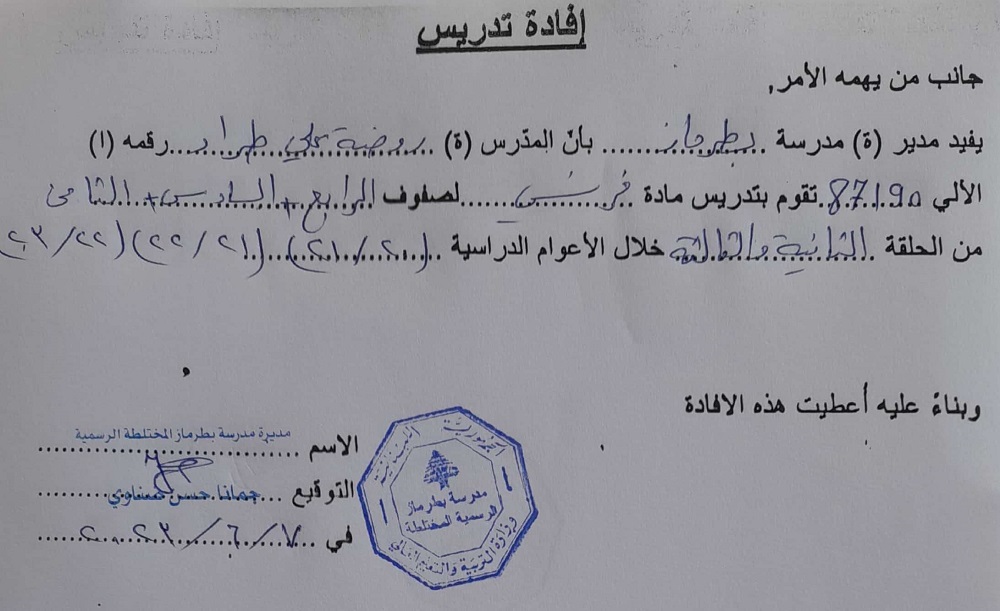 إفادة تدريس
جانب من يهمه الأمر,
يفيد مدير (ة) مدرسة ..بطرماز.......... بأنّ المدّرس (ة) ...روضة علي طراد...رقمه (ا)
الآلي 87190 تقوم بتدريس مادة ..فرنسي.......لصفوف الرابع + السادس + الثامن
من الحلقة .الثانية والثالثة خلال الأعوام الدراسية ..(٢٠/٢١)...(٢١/٢٢)(٢٢/٢٣
وبناءً عليه أعطيت هذه الافادة
الاسم مديرة مدرسة بطرماز المختلطة الرسمية
التوقيع ...جمانا حسن
في ...٧/٦/٢٠٢٣
الجمهورية اللبنانية
مدرسة بطرماز
الرسمية المختلطة
وزارة التربية والتعليم العالي